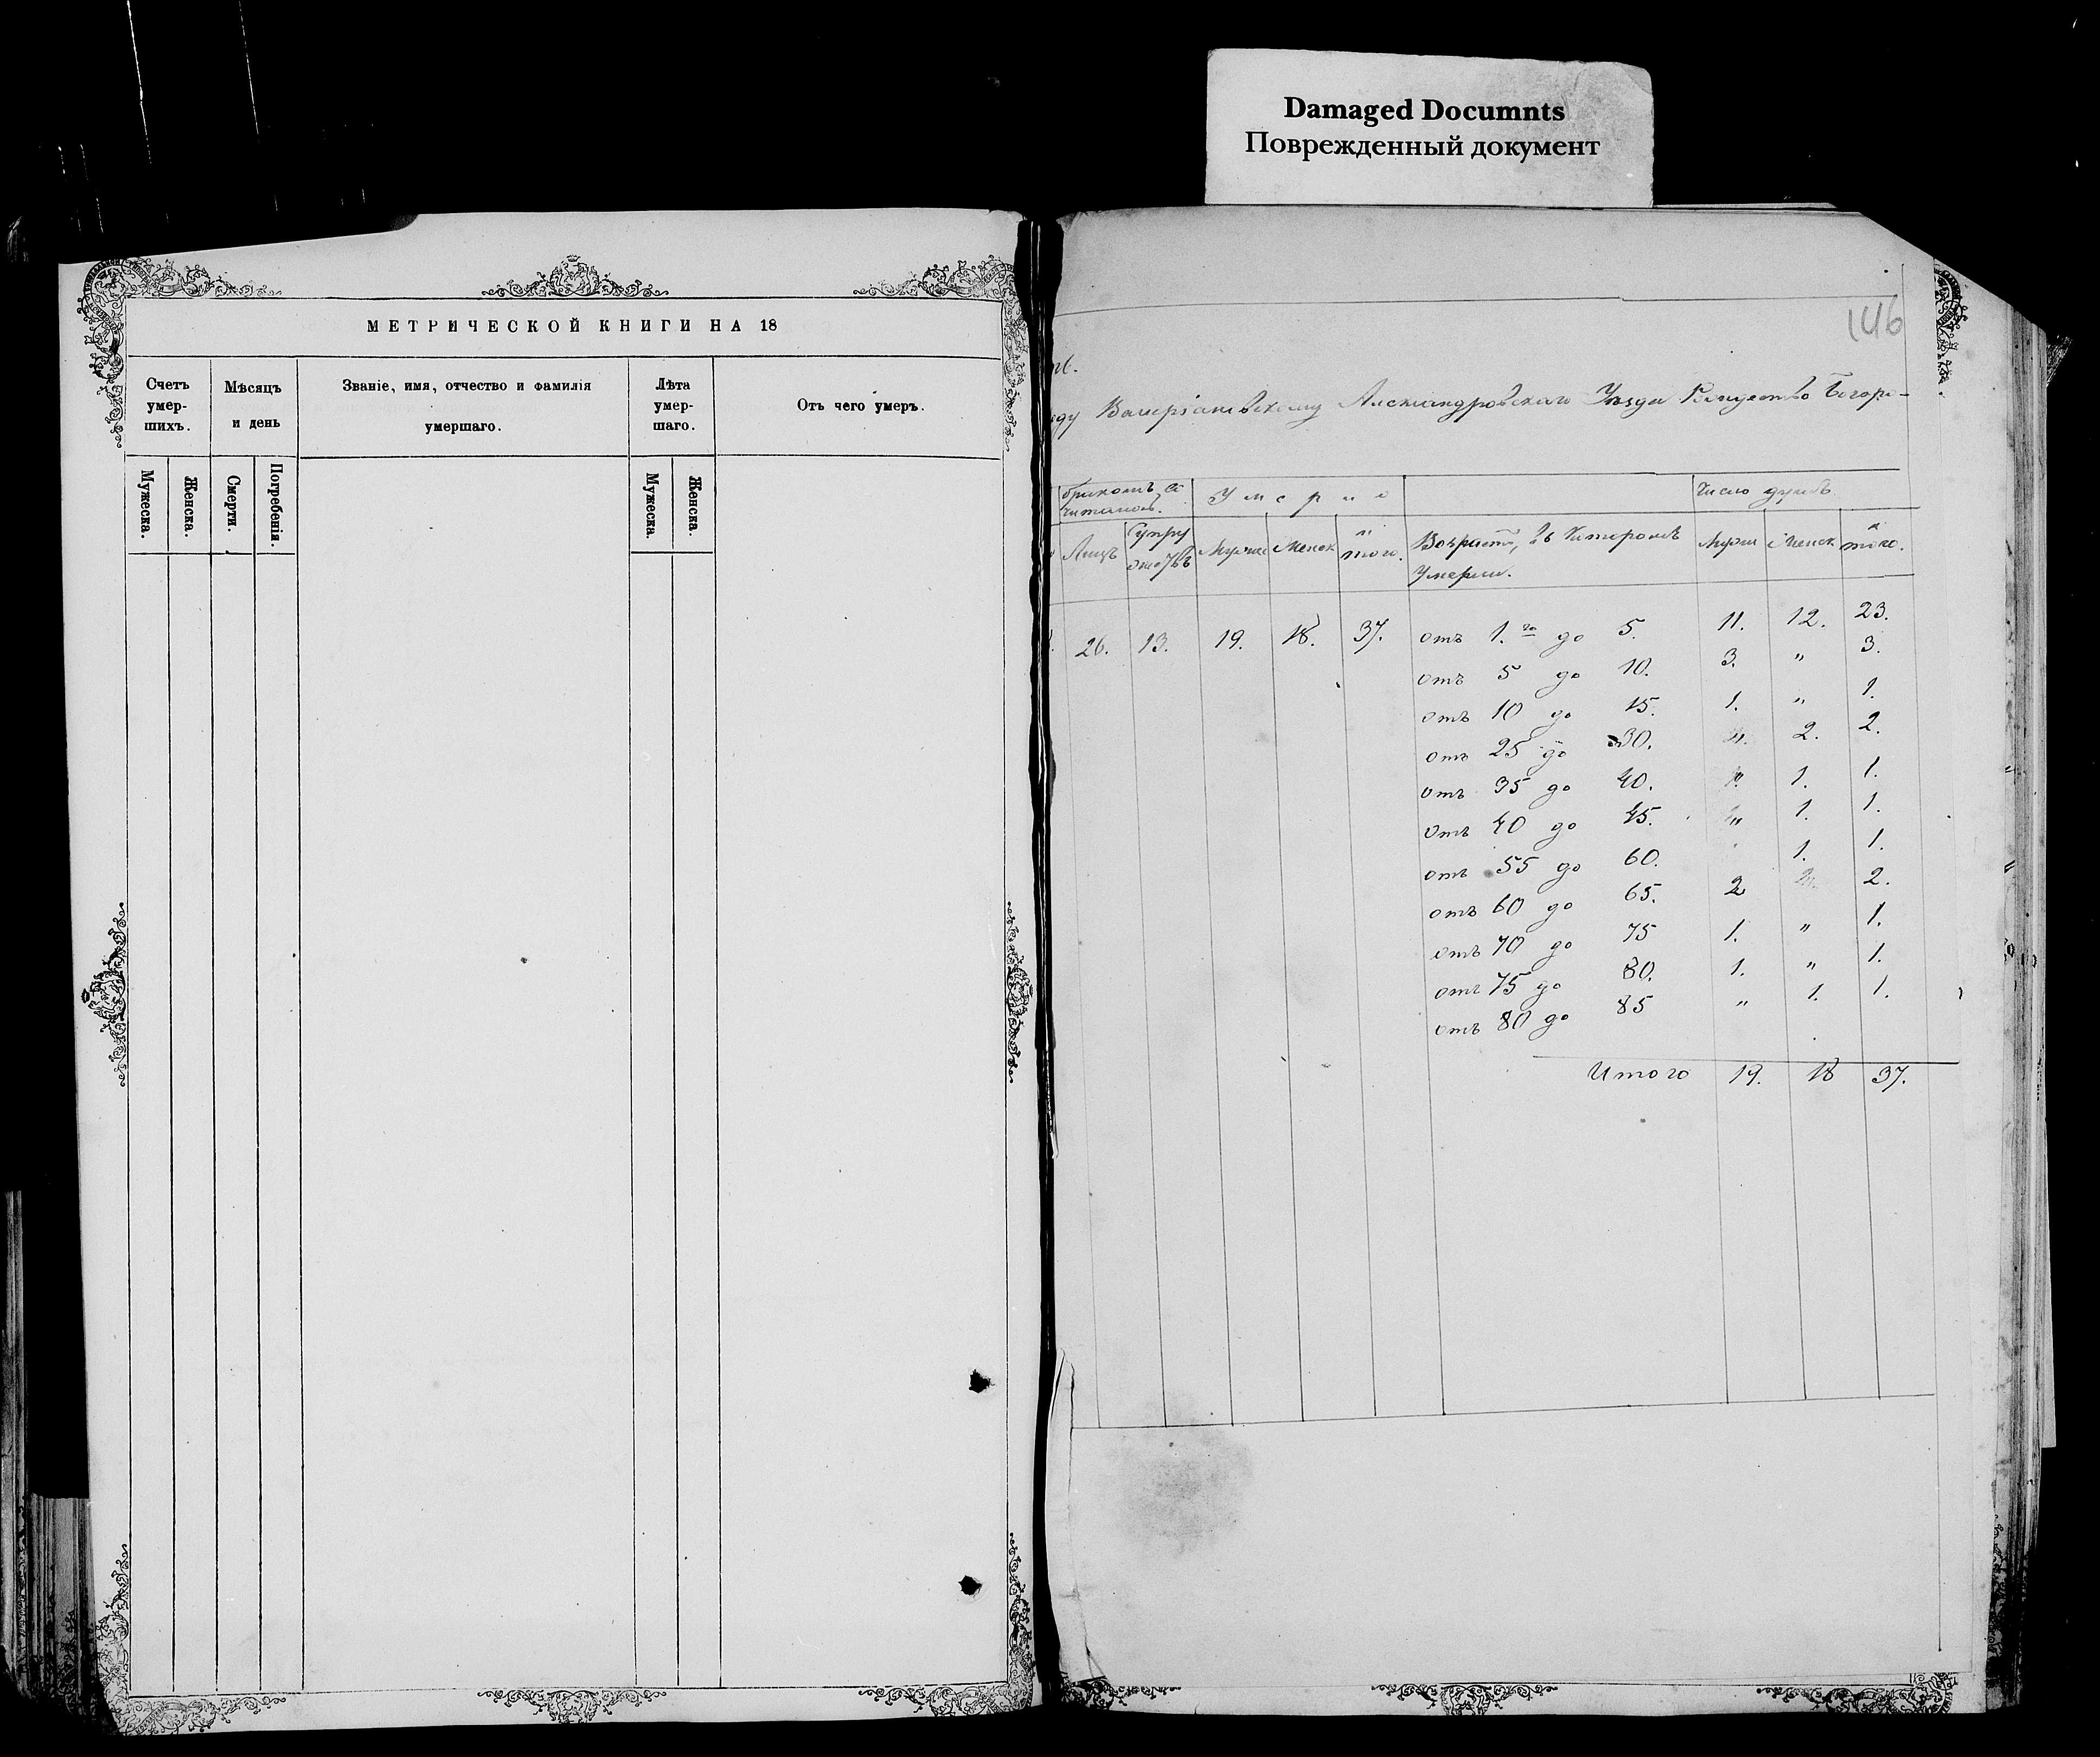 Damaged Documnts
Поврежденный документ
МЕТРИЧЕСКОЙ КНИГИ НА 18
Счетъ умер-шихъ.
Мѣсяцъ и день
Званіе, имя, отчество и фамилія умершаго.
Лѣта умер-шаго.
Отъ чего умеръ.
Мужеска.
Женска.
Смерти.
Погребенія.
Мужеска.
Женска.
146
Валеріановскому Александровскаго Уѣзда Рождество Богоро-
бракомъ со
читалось.
Умерло
Число душъ.
Лицъ
Супру
жествъ
Мужск
Женск
и
того.
Возрастъ, въ котором
Умерли.
Мужск
Женск
и
того.
26. 13. 19. 18. 37. отъ 1.го до 5. 11. 12. 23.
отъ 5 до 10. 3. " 3.
отъ 10 до 15. 1. " 1.
отъ 25 до 30. ". 2. 2.
отъ 35 до 40. " 1. 1.
отъ 40 до 45. " 1. 1.
отъ 55 до 60. 1. 1.
отъ 60 до 65. 2 2.
отъ 70 до 75 1. " 1.
отъ 75 до 80. 1. " 1.
отъ 80 до 85 " 1. 1.
Итого 19. 18 37.